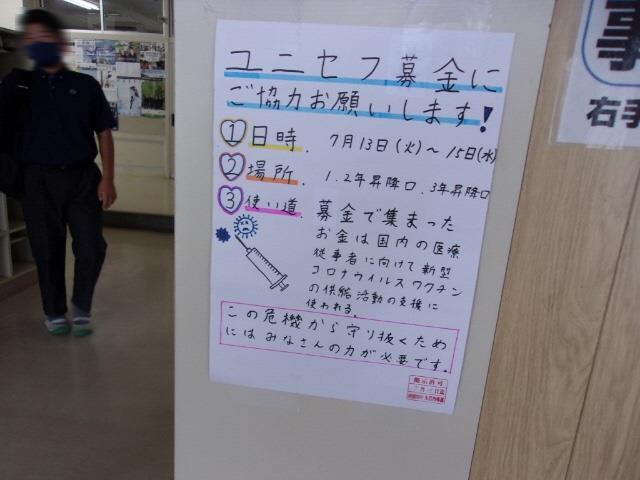 ユニセフ募金に
ご協力お願いします!
① 日時. 7月13日(火)~15日(木)
② 場所. 1.2年昇降口、3年昇降口
③ 使い道. 募金で集まった
お金は国内の医療
従事者に向けて新型
コロナウイルスワクチン
の供給活動の支援に
使われる。
この危機から守り抜くため
にはみなさんの力が必要です。
掲示許可
右手